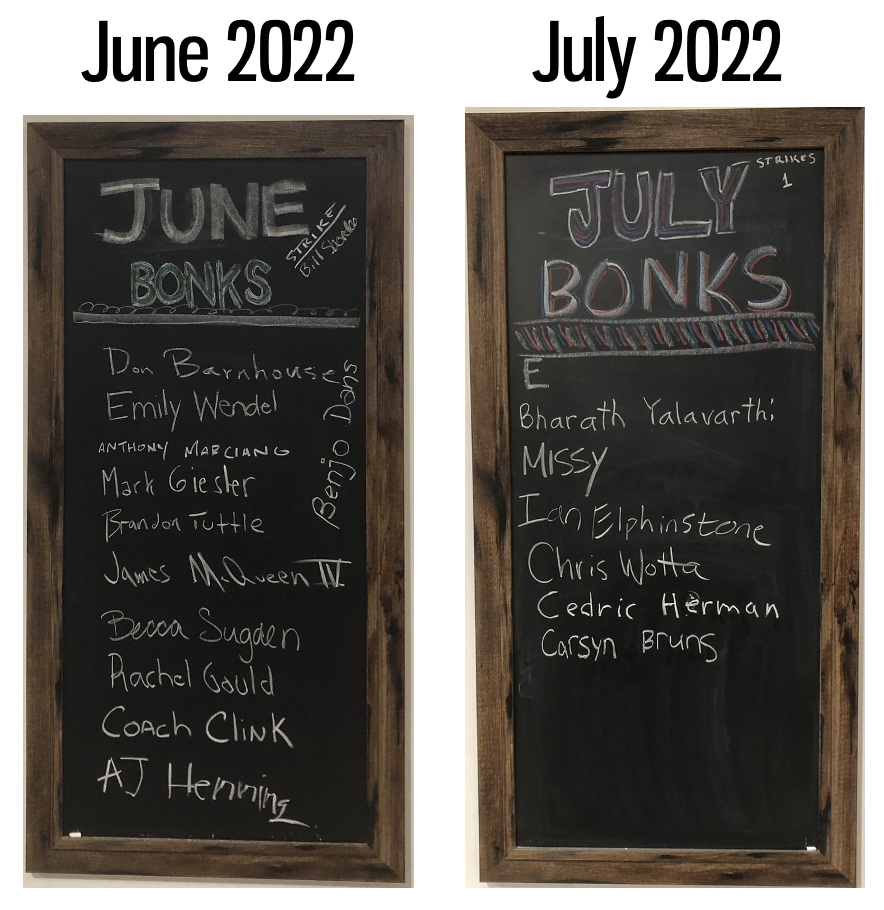 June 2022
JUNE
STRIKE
Bill
BONKS
Don Barnhouse
Emily Wendel
ANTHONY MARCIANO
Mark Giesler
Brandon Tuttle
James McQueen IV
Becca Sugden
Rachel Gould
COACH CLINK
AJ Henning
Benjo Dans
July 2022
STRIKES
1
JULY
BONKS
E
Bharath Yalavarthi
MISSY
Ian Elphinstone
Chris Wotta
Cedric Herman
Carsyn Bruns